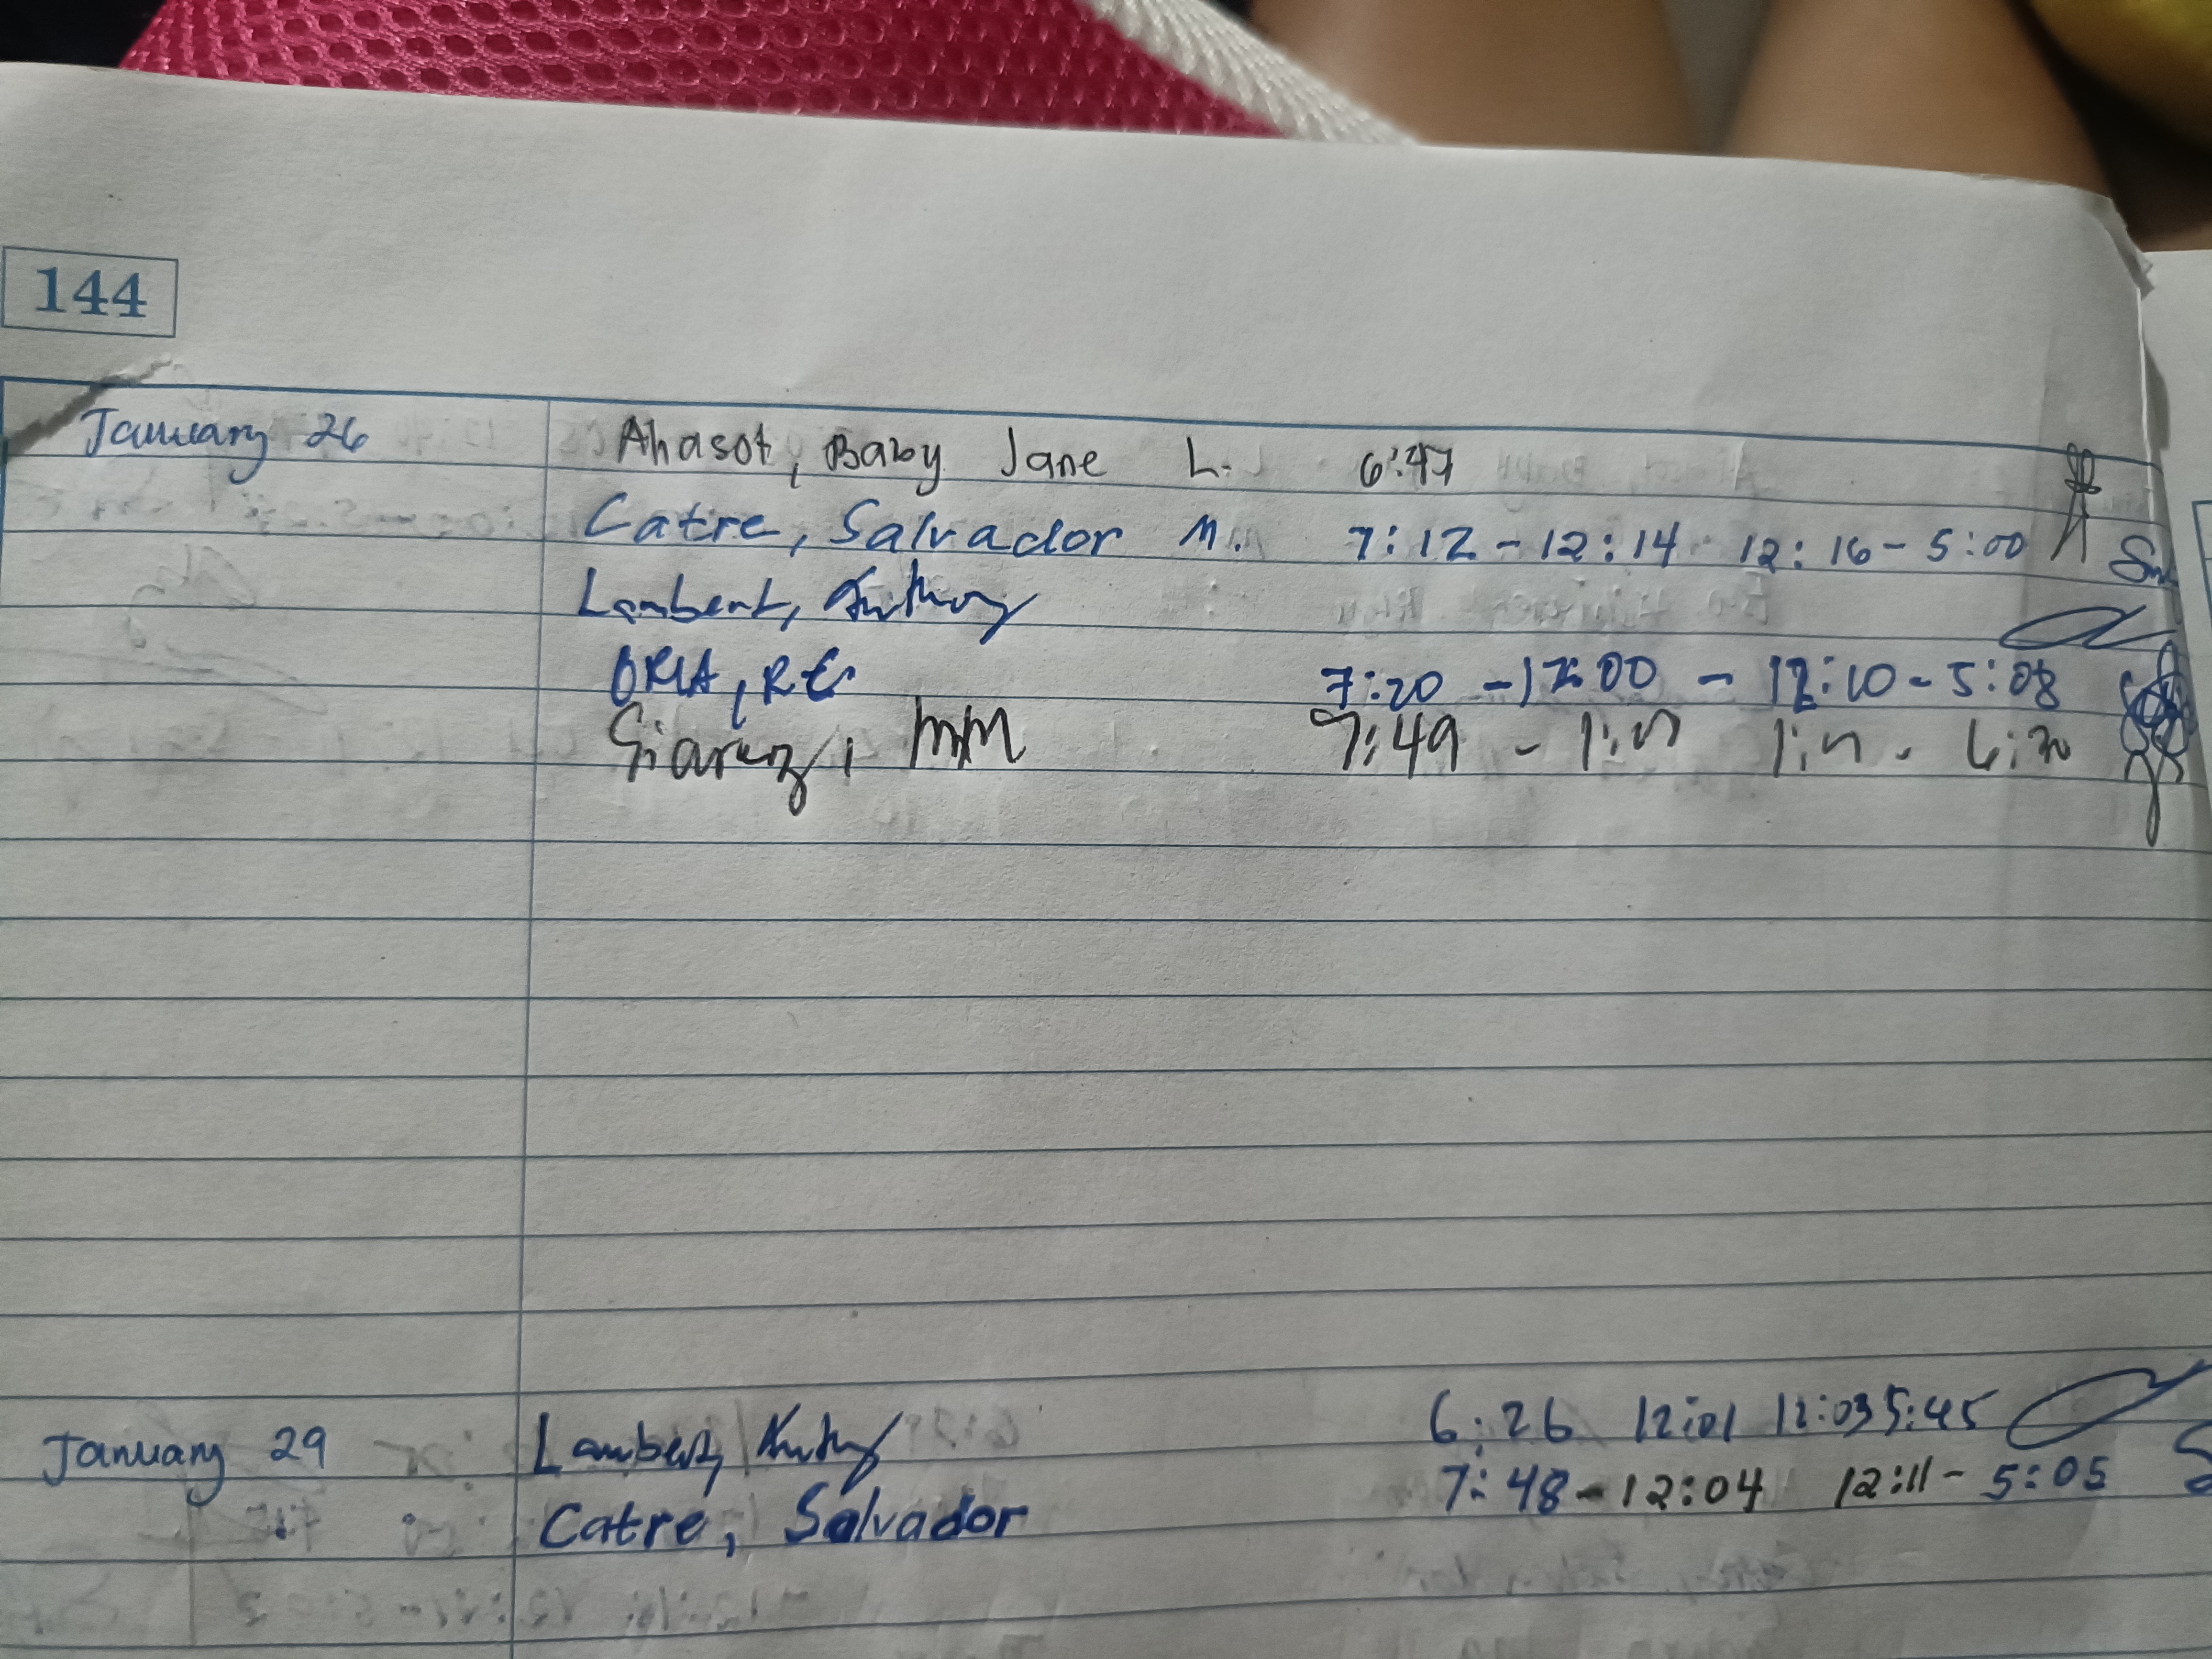 144
January 26 Ahasot, Baby Jane L. 6:47
Catre, Salvador M. 7:12 - 12:14 12:16 - 5:00
Lambert, Anthony
ORIA, R.G. 7:20 - 12:00 - 12:10 - 5:08
7:49 -
January 29 Lambert, 6:26 12:01 12:03 5:45
Catre, Salvador 7:48 - 12:04 12:11 - 5:05